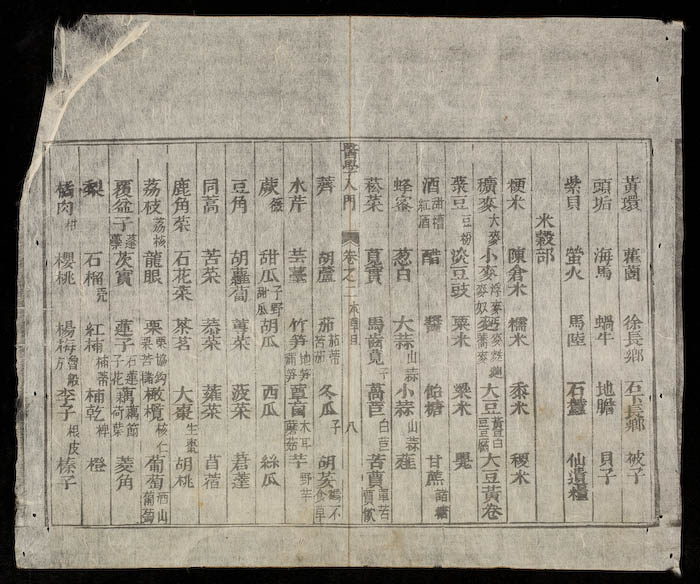 黃環 藿菌 徐長鄉 石長鄉 被子
頭垢 海馬 蝸牛 地膽 貝子
紫貝 螢火 馬陸 石蠶 仙遺糧
米穀部
粳米 陳倉米 糯米 黍米 稷米
穬麥大麥 小麥浮麥麥奴 大豆黃卷
菉豆豆粉 淡豆豉 粟米 粱米
酒甜糟紅酒 醋 醬 飴糖 甘蔗
蜂蜜 葱白 大蒜山蒜 小蒜山蒜 薤
菘菜 莧實 馬齒莧子 萵苣白苣 苦蕒
醫學入門 卷之二 本草目 八
薺 胡蘆 茄茄蒂 冬瓜子 胡荽
水芹 芸薹 竹筍 蕈菌木耳蘑菇 芋野芋
蕨薇 甜瓜子野甜瓜 胡瓜 西瓜 絲瓜
豆角 胡蘿蔔 蓴菜 菠菜 莙薘
同蒿 苦菜 蕹菜 苜蓿
鹿角菜 石花菜 茶茗 大棗生棗 胡桃
荔枝荔核 龍眼 栗 橄欖核仁 葡萄
覆盆子蓬藟 芡實 蓮子石蓮子花 藕藕節荷葉 菱角
梨 石榴殼 紅柿柿蒂 柿乾椑 橙
橘肉柑 櫻桃 楊梅 李子根皮 榛子